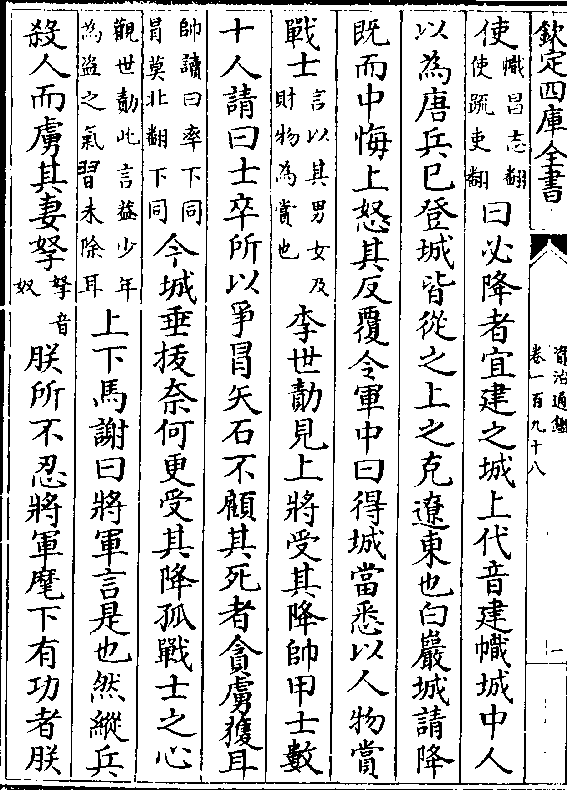 欽定四庫全書
資治通鑑
卷一百九十八
一
使幟昌志翻使疏吏翻曰必降者宜建之城上代音建幟城中人
以為唐兵已登城皆從之上之克遼東也白巖城請降
既而中悔上怒其反覆令軍中曰得城當悉以人物賞
戰士言以其男女及財物為賞也李世勣見上將受其降帥甲士數
十人請曰士卒所以爭冒矢石不顧其死者貪虜獲耳
帥讀曰率下同冒莫北翻下同今城垂拔奈何更受其降孤戰士之心
觀世勣此言蓋少年為盜之氣習未除耳上下馬謝曰將軍言是也然縱兵
殺人而虜其妻孥孥音奴朕所不忍將軍麾下有功者朕